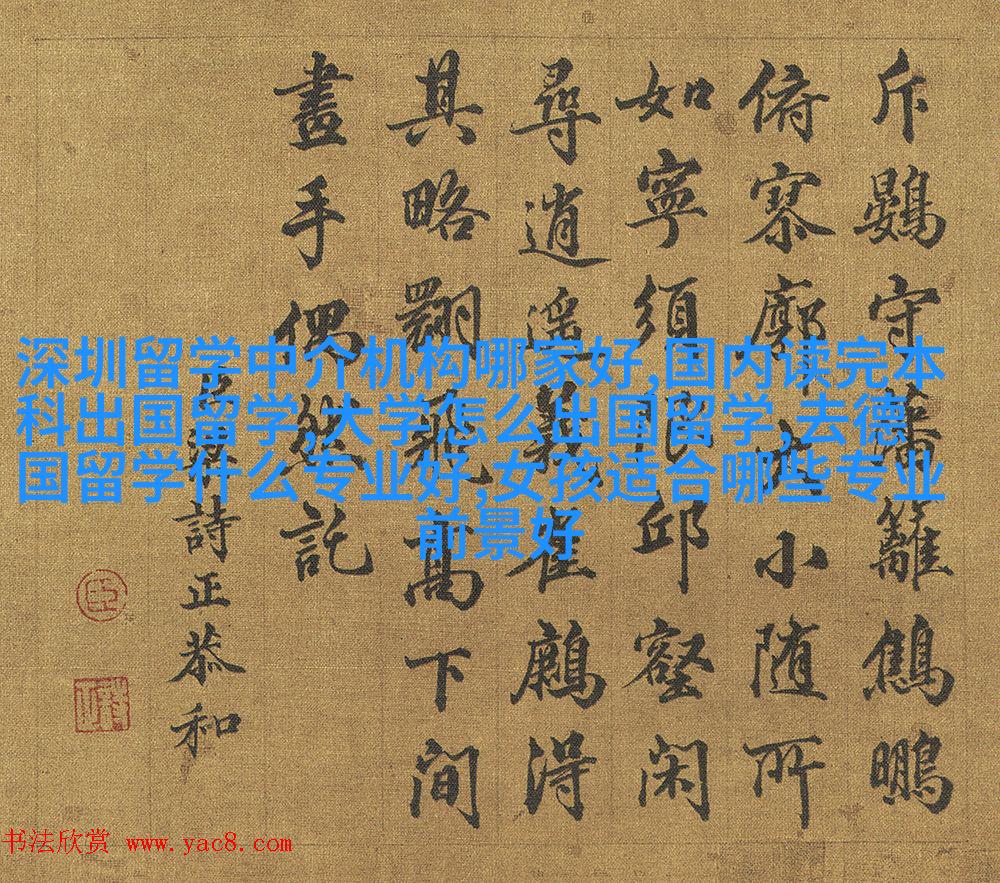 斥鷃守藩籬鷦鵬
俯寥廓大小随所
如寧須限邱壑閑
尋逍遥義雀得
其略翩飛高下間
畫手偶然託
臣梁詩正恭和
深圳留学中介机构哪家好,国内读完本
科出国留学,大学怎么出国留学,去德
国留学什么专业好,女孩适合哪些专业
前景好
书法欣赏 www.yac8.com